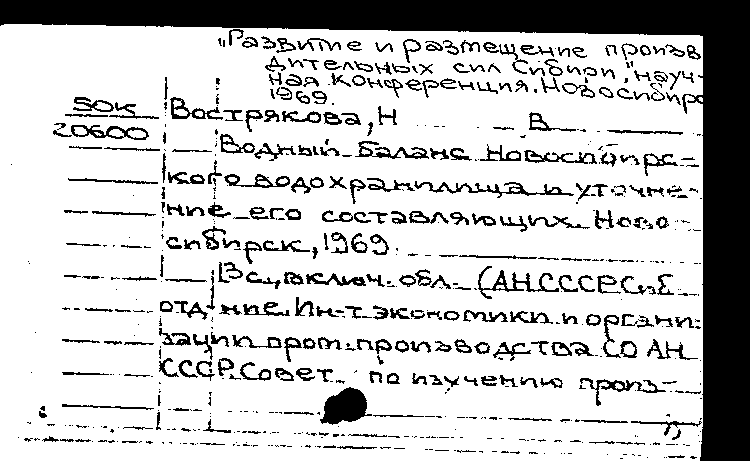 „Развитие и размещение произв
дительных сил Сибири," науч-
ная конференция. Новосибирс
1969.
50к
20600
Вострякова, Н В
Водный баланс Новосибирс-
кого водохранилища и уточне-
ние его составляющих. Ново-
сибирск, 1969.
13с., включ. обл. (АН СССР. Сиб.
отд-ние. Ин-т экономики и органи-
зации пром. производства СО АН
СССР. Совет по изучению произ-